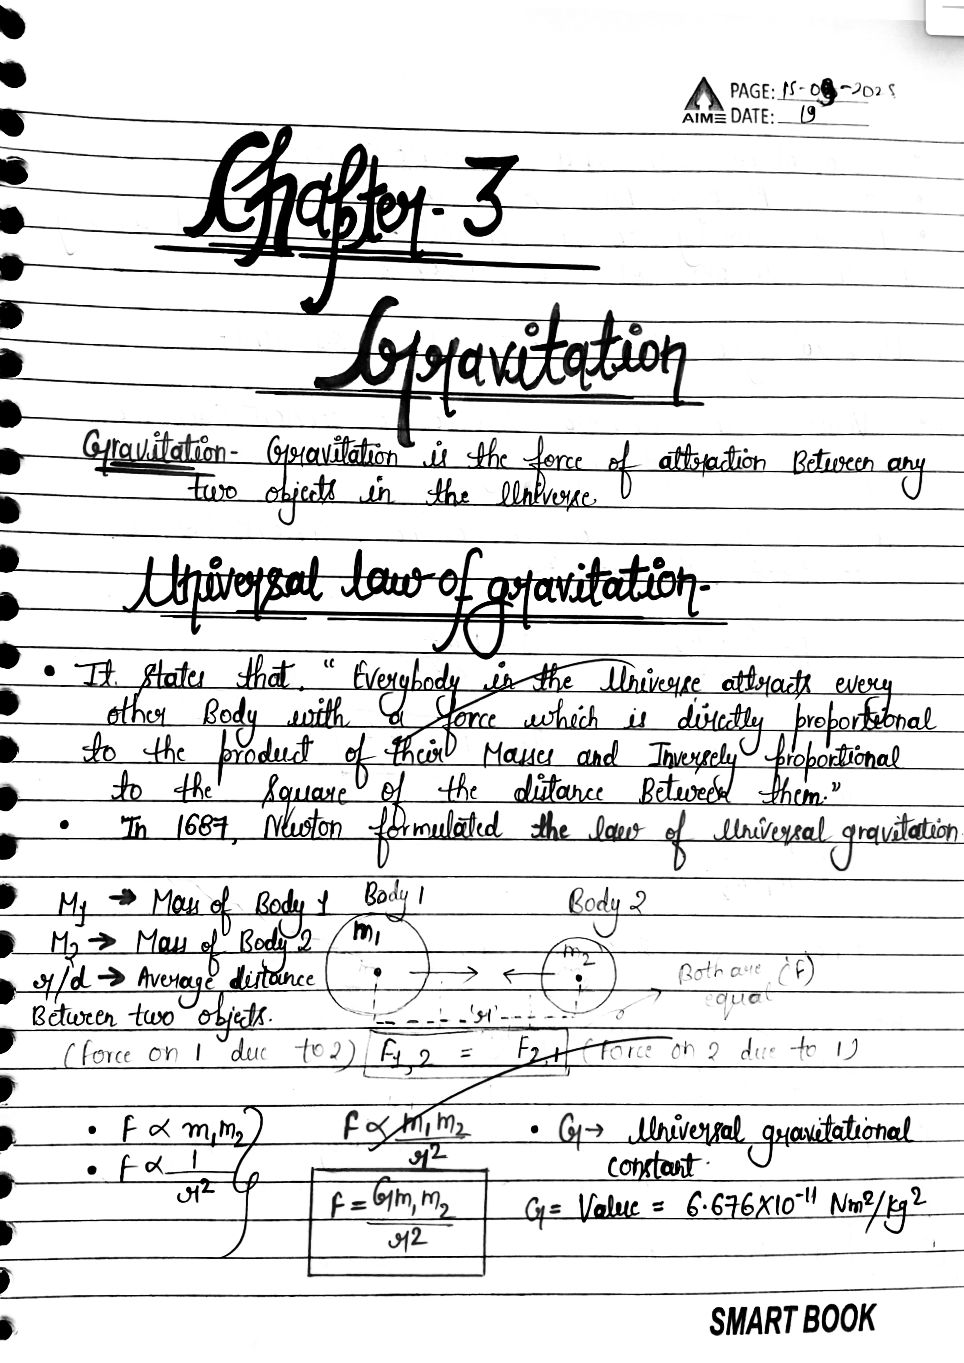 PAGE: 15-09-2025
AIME DATE: 19
Chapter-3
Gravitation
Gravitation- Gravitation is the force of attraction Between any
two objects in the Universe
Universal law of gravitation-
• It States that. "Everybody in the Universe attracts every
other Body with a force which is directly proportional
to the product of their Masses and Inversely proportional
to the Square of the distance Between them."
• In 1687, Newton formulated the law of Universal gravitation.
M1 → Mass of Body 1 Body 1 Body 2
M2 → Mass of Body 2 m1 m2
r/d → Average distance Both are (F)
equal
Between two objects. 'r'
(force on 1 due to 2) F1,2 = F2,1 (force on 2 due to 1)
• F ∝ m1m2 F ∝ m1m2/r2 • G → Universal gravitational
constant.
• F ∝ 1/r2 F = Gm1m2/r2 G = Value = 6.676X10⁻¹¹ Nm²/kg²
SMART BOOK